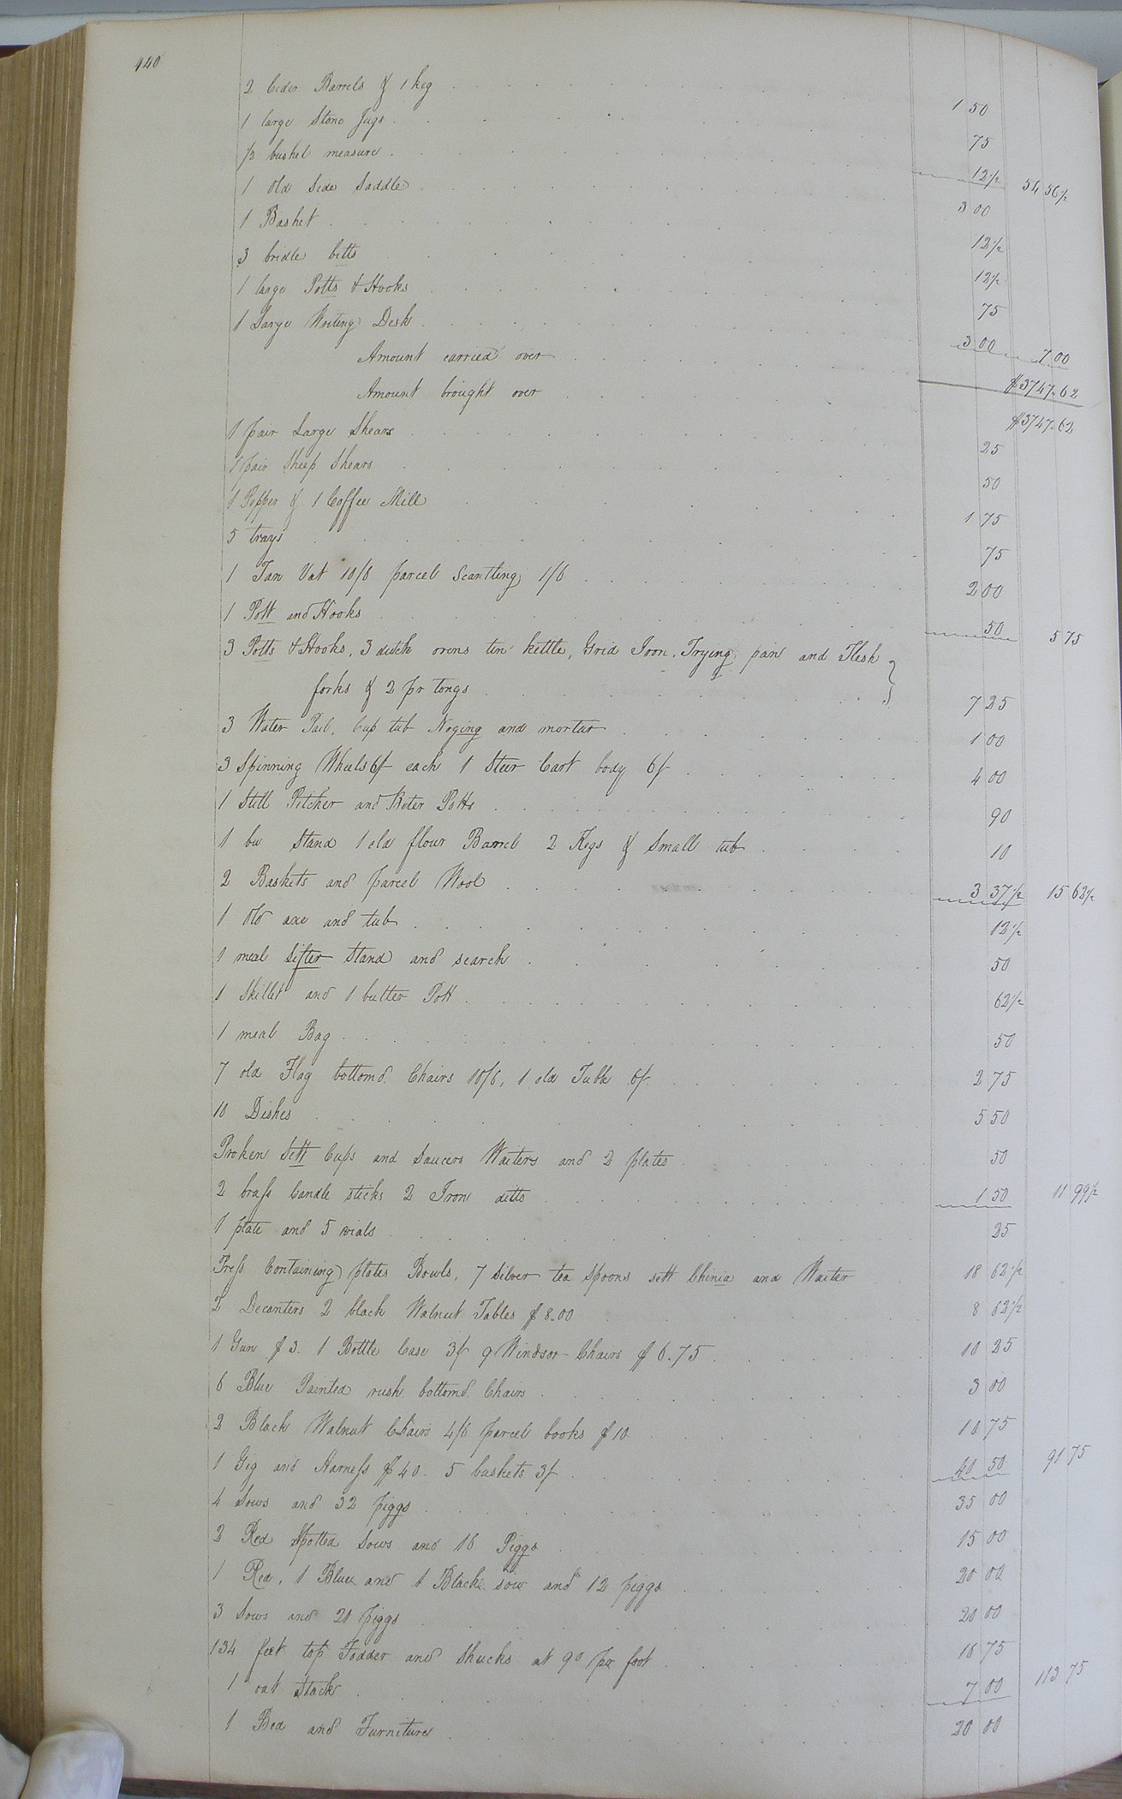 140
2 Ceder Barrels & 1 keg 1 50
1 large Stone Jugs 75
½ bushel measure 12½ 54 56½
1 old Side Saddle 3 00
1 Basket 12½
3 bridle bitts 12½
1 large Potts & Hooks 75
1 Large Writing Desk 3 00 7 00
Amount carried over $3747.62
Amount brought over $3747.62
1 pair Large Shears 25
1 pair Sheep Shears 50
1 Pepper & 1 Coffee Mill 1 75
5 trays 75
1 Tan Vat 10/6 parcel Scantling 1/6 2 00
1 Pott and Hooks 50 5 75
3 Potts & Hooks, 3 dutch ovens tin kettle, Grid Iron, Frying pan and Flesh
forks & 2 pr tongs 7 25
3 Water Pail, Cup tub Noging and mortar 1 00
3 Spinning Wheels 6/ each 1 Steer Cart body 6/ 4 00
1 Still Pitcher and Potts 90
1 bu Stand 1 old flour Barrel 2 Kegs & Small tub 10
2 Baskets and parcel Wool 3 37½ 15 62½
1 Old axe and tub 12½
1 meal Sifter Stand and search 50
1 Skillet and 1 butter Pott 62½
1 meal Bag 50
7 old Flag bottomd Chairs 10/6, 1 old Table 6/ 2 75
10 Dishes 5 50
Broken Sett Cups and Saucers Waiters and 2 plates 50
2 brass Candle sticks 2 Iron ditto 1 50 11 99½
1 plate and 5 vials 25
Press Containing plates Bowls, 7 Silver tea Spoons sett Chinia and Waiter 18 62½
2 Decanters 2 black Walnut Tables $8.00 8 62½
1 Gun $3. 1 Bottle Case 3/ 9 Windsor Chairs $6.75 10 25
6 Blue Painted rush bottomd Chairs 3 00
2 Black Walnut Chairs 4/6 parcel books $10 10 75
1 Gig and Harness $40. 5 baskets 3/ 40 50 91 75
4 Sows and 32 piggs 35 00
2 Red Spotted Sows and 16 Piggs 15 00
1 Red, 1 Blue and 1 Black sow and 12 piggs 20 00
3 Sows and 20 piggs 20 00
134 feet top Fodder and Shucks at 9d per foot 16 75
1 oat Stack 7 00 113 75
1 Bed and Furniture 20 00